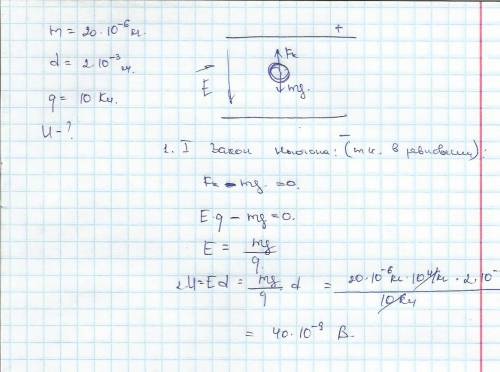 m = 20·10⁻⁶ кг.
+
d = 2·10⁻³ м.
Fк
E
mg.
q = 10 Кл.
U - ?
−
1. I Закон Ньютона: (т.к. в равновесии):
Fк - mg = 0.
E·q - mg = 0.
E = mg/q.
2. U = Ed = mg/q d = 20·10⁻⁶ кг · 10 Н/кг · 2·10⁻ / 10 Кл
= 40·10⁻⁹ В.